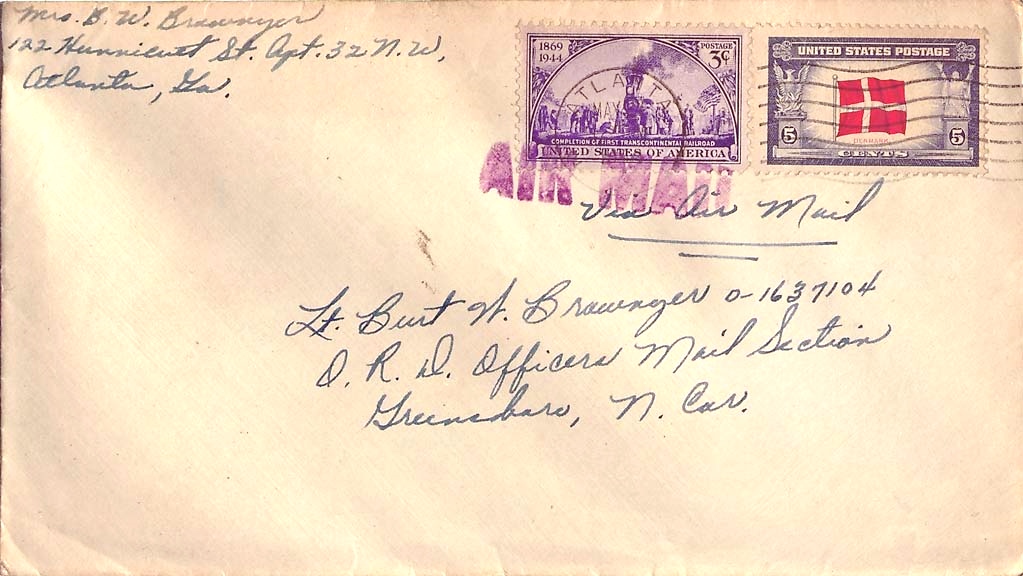 Mrs. B. W. Brawnyer
122 Hunnicutt St. Apt. 32 N.W,
Atlanta, Ga.
1869
1944
POSTAGE
3¢
COMPLETION OF FIRST TRANSCONTINENTAL RAILROAD
UNITED STATES OF AMERICA
ATLANTA
MAY
UNITED STATES POSTAGE
DENMARK
5 CENTS 5
AIR MAIL
Via Air Mail
Lt. Burt W. Brawnyer O-1637104
O. R. D. Officers Mail Section
Greensboro, N. Car.